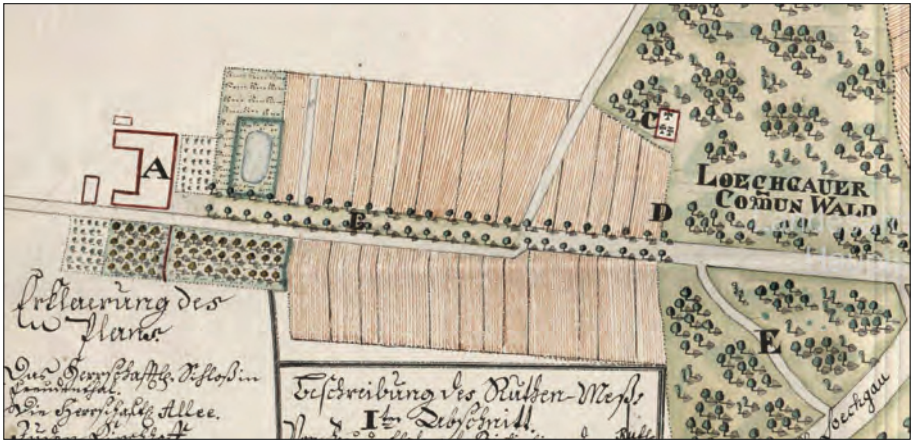 A
C
LOECHGAUER
COM̃UN WALD
D
B
E
Erklaerung des
Plans.
Das Herrschafftl. Schloß in
Freudenthal.
Die Herrschafftl. Allee.
Juden Kirchhoff
Beschreibung des Ruthen-Meß:
I.ten Abschnitt
oechgau